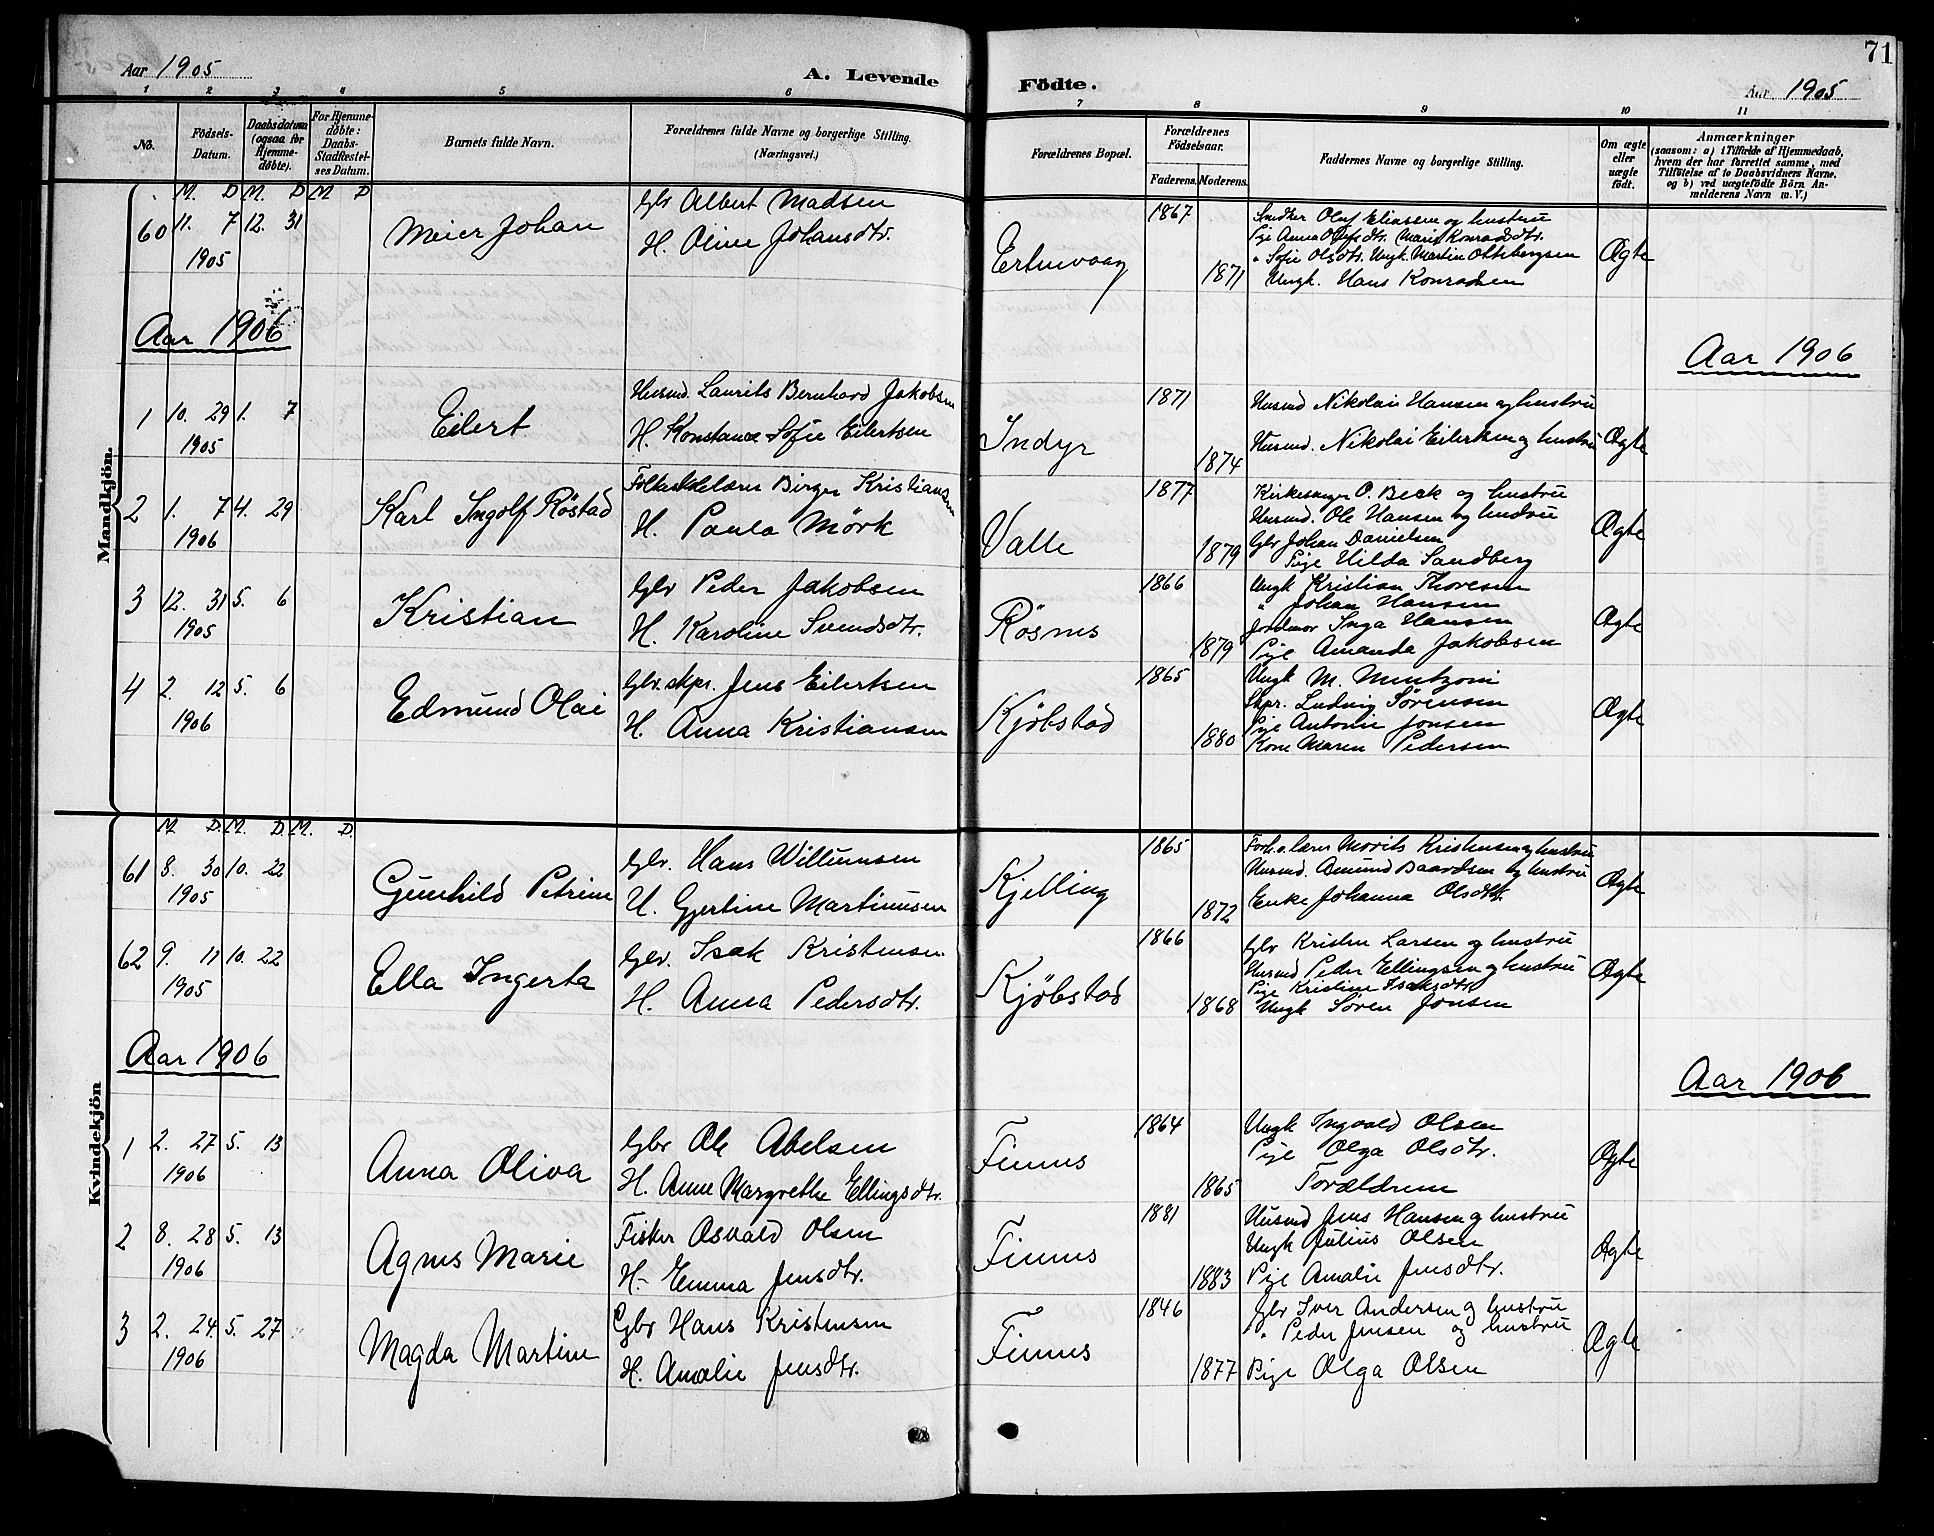 71
Aar 1905
A. Levende
Födte.
Aar 1905
1 2 3 4 5 6 7 8 9 10 11
No.
Födsels-Datum.
Daabsdatum (ogsaa for Hjemme-døbte).
For Hjemme-døbte: Daabs-Stadfæstelses Datum.
Barnets fulde Navn.
Forældrenes fulde Navne og borgerlige Stilling.
(Næringsvei.)
Forældrenes Bopæl.
Forældrenes Fødselsaar.
Faderens. Moderens.
Faddernes Navne og borgerlige Stilling.
Om ægte eller uægte født.
Anmærkninger
(saasom: a) i Tilfælde af Hjemmedaab,
hvem der har forrettet samme, med
Tilføielse af to Daabsvidners Navne,
og b) ved uægtefødte Börn An-
melderens Navn m. V.)
Mandkjön.
M. D. M. D M D
60 11. 7 12. 31
1905
Meier Johan
Gbr Albert Madsen
H. Oline Johansdtr.
Ertnvaag
1867
1871
Snedker Oluf Eliassen og hustru
Pige Anna Olufsdtr. Marie Konradsdtr.
" Sofie Olsdtr. Ungk. Martin Ottebergsen
Ungk. Hans Konradsen
Ægte
Aar 1906
Aar 1906
1 10. 29 1. 7
1905
Eilert
Husmd. Laurits Bernhard Jakobsen
H. Konstance Sofie Eilertsen
Indyr
1871
1874
Husmd Nikolai Hansen og hustru
Husmd. Nikolai Eilertsen og hustru
Ægte
2 1. 7 4. 29
1906
Karl Ingolf Röstad
Folkeskolelærer Birger Kristiansen
H. Paula Mörk
Valle
1877
1879
Kirkesanger O. Beck og hustru
Husmd. Ole Hansen og hustru
Gbr Johan Danielsen
Pige Hilda Sandberg
Ægte
3 12. 31 5. 6
1905
Kristian
Gbr Peder Jakobsen
H. Karoline Svendsdtr.
Rösnes
1866
1879
Ungk Kristian Thoresen
" Johan Hansen
Jordmor Inga Hansen
Pige Amanda Jakobsen
Ægte
4 2. 12 5. 6
1906
Edmund Olai
Gbr. skpr. Jens Eilertsen
H. Anna Kristiansen
Kjöbstad
1865
1880
Ungk M. Mentzoni
Skpr. Ludvig Sörensen
Pige Antonie Jonsen
Kone Maren Pedersen
Ægte
Kvindekjön
M. D. M. D. M. D.
61 8. 30 10. 22
1905
Gunhild Petrine
Gbr. Hans Willumsen
H. Gjertine Martinusen
Kjelling
1865
1872
Forh.v. lærer Morits Kristensen og hustru
Husmd. Amund Baardsen og hustru
Enke Johanna Olsdtr.
Ægte
62 9. 11 10. 22
1905
Ella Ingerta
Gbr. Isak Kristensen
H. Anna Pedersdtr.
Kjöbstad
1866
1868
Gbr Kristen Larsen og hustru
Husmd Peder Ellingsen og hustru
Pige Kristine Isaksdtr
Ungk Sören Jonsen
Ægte
Aar 1906
Aar 1906
1 2. 27 5. 13
1906
Anna Oliva
Gbr Ole Abelsen
H. Anne Margrethe Ellingsdtr.
Finnes
1864
1865
Ungk Ingvald Olsen
Pige Olga Olsdtr.
Forældrene
Ægte
2 8. 28 5. 13
1906
Agnes Marie
Fisker Osvald Olsen
H. Emma Jensdtr.
Finnes
1881
1883
Husmd Jens Hansen og hustru
Ungk Julius Olsen
Pige Amalie Jensdtr.
Ægte
3 2. 24. 5. 27
1906
Magda Martine
Gbr Hans Kristensen
H. Amalie Jensdtr.
Finnes
1846
1877
Gbr Iver Andersen og hustru
" Peder Jensen og hustru
Pige Olga Olsen
Ægte